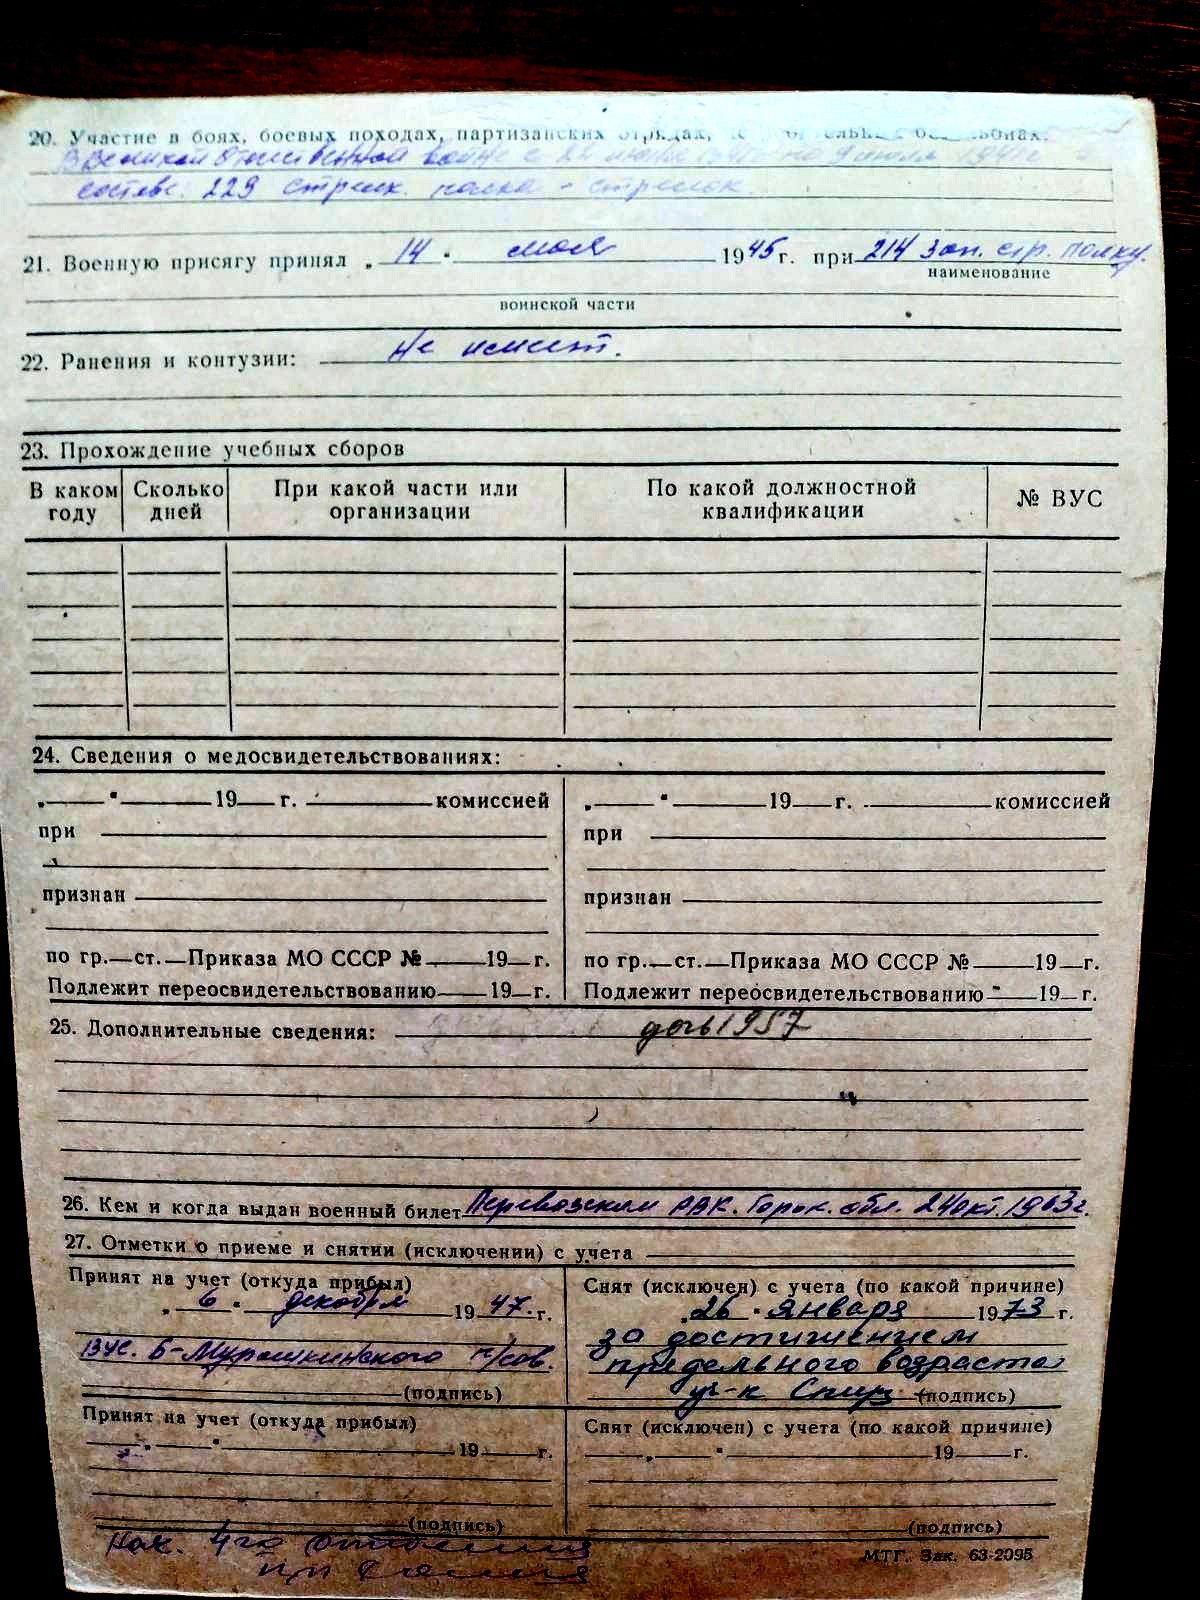 20. Участие в боях, боевых походах, партизанских отрядах,
В Великой Отечественной войне с
составе. 229 стрелк. полка - стрелок.
21. Военную присягу принял „ 14 " мая 1945 г. при 214 зап. стр. полку.
наименование
воинской части
22. Ранения и контузии: Не имеет.
23. Прохождение учебных сборов
В каком году Сколько дней При какой части или организации По какой должностной квалификации № ВУС
24. Сведения о медосвидетельствованиях:
„ " 19 г. комиссией „ " 19 г. комиссией
при при
признан признан
по гр. ст. Приказа МО СССР № 19 г. по гр. ст. Приказа МО СССР № 19 г.
Подлежит переосвидетельствованию 19 г. Подлежит переосвидетельствованию 19 г.
25. Дополнительные сведения: дочь 1957
26. Кем и когда выдан военный билет Перевозским РВК. Горьк. обл. 24 окт. 1963 г.
27. Отметки о приеме и снятии (исключении) с учета
Принят на учет (откуда прибыл) Снят (исключен) с учета (по какой причине)
„ 6 " декабря 1947 г. „ 26 " января 1973 г.
ВУС. Б-Мурашкинского с/сов. за достижением
предельного возраста
(подпись) (подпись)
Принят на учет (откуда прибыл) Снят (исключен) с учета (по какой причине)
„ " 19 г. „ " 19 г.
(подпись) (подпись)
Нач. 4го отделения
МТГ. Зак. 63-2095